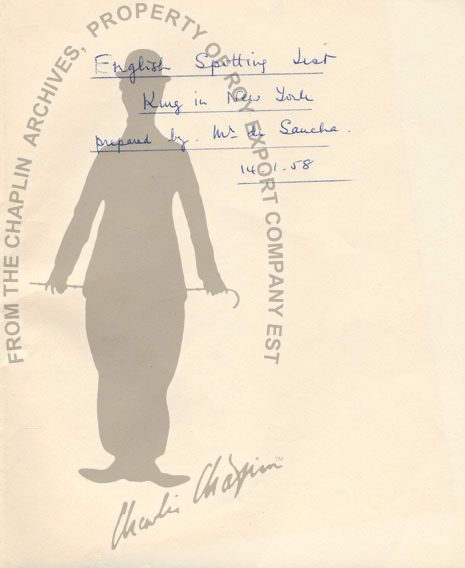 English Spotting List
King in New York
prepared by. Mr de Sancha.
14.1.58
FROM THE CHAPLIN ARCHIVES, PROPERTY OF ROY EXPORT COMPANY EST
Charlie Chaplin™